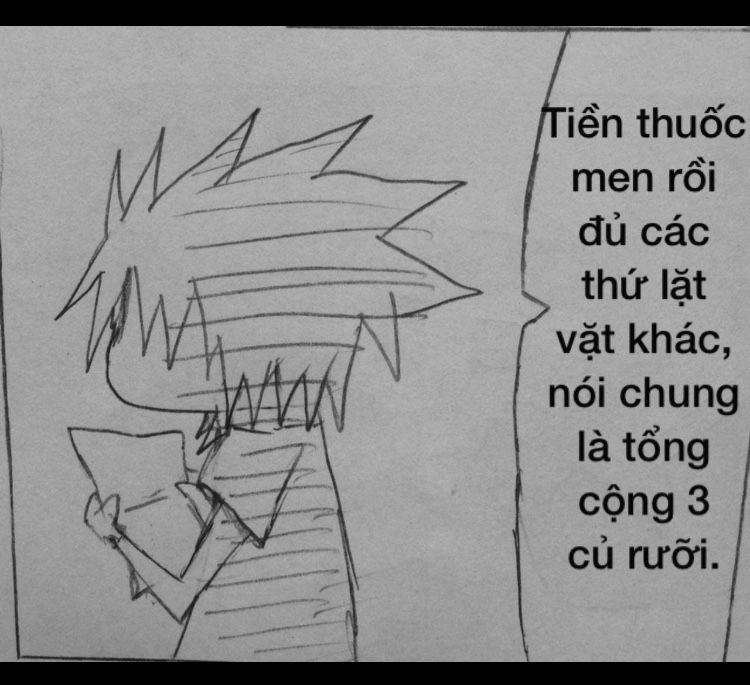 Tiền thuốc
men rồi
đủ các
thứ lặt
vặt khác,
nói chung
là tổng
cộng 3
củ rưỡi.